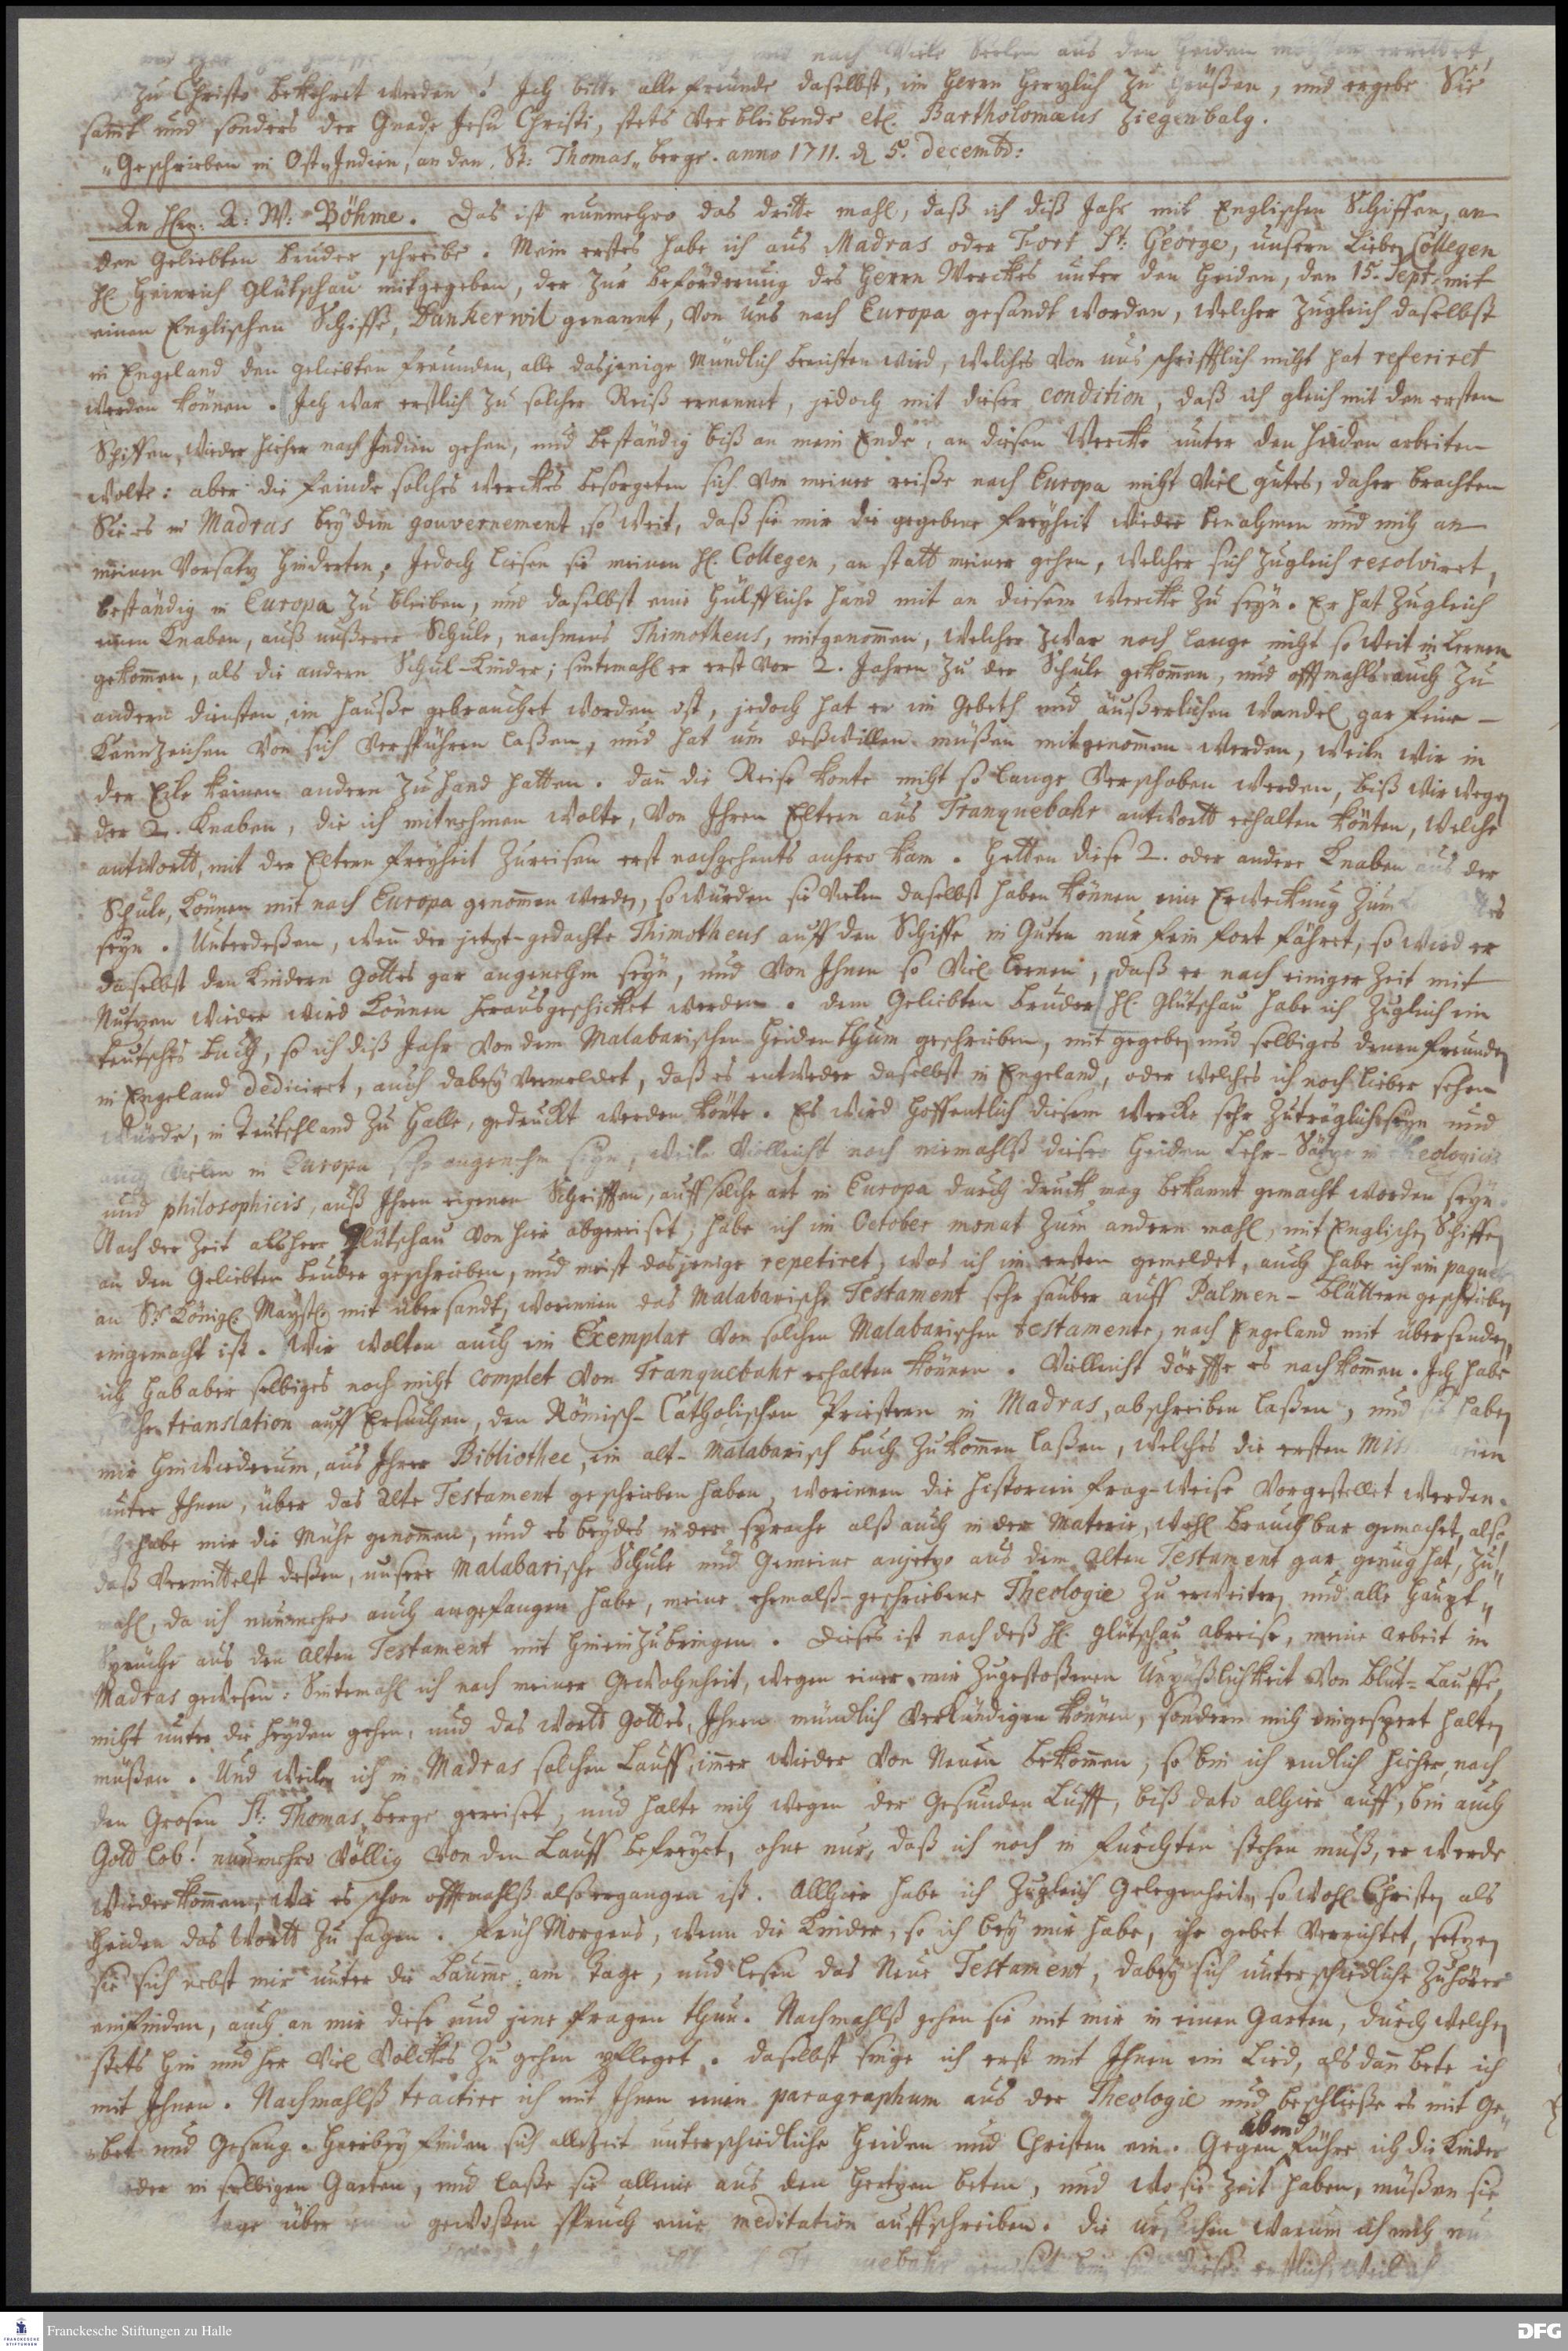 noch viele Seelen aus den Heiden errettet,
zu Christo bekehret werden! Ich bitte alle freunde daselbst, im Herrn herzlich zu grüßen, und ergebe Sie
samt und sonders der Gnade Jesu Christi, stets verbleibende etc. Bartholomæus Ziegenbalg.
„Geschrieben in Ost-Indien, an den St: Thomas„berge. anno 1711. d 5. decembr:
An Hrn: A: W: Böhme. Das ist nunmehro das dritte mahl, daß ich diß Jahr mit Englischen Schiffen, an
den Geliebten bruder schreibe. Mein erstes habe ich aus Madras oder Fort St: George, unsern Lieben Collegen
H. Heinrich Glütschau mitgegeben, der zur beförderung des Herrn Werckes unter den Heiden, den 15. Sept. mit
einen Englischen Schiffe, Dunkerwil genannt, von uns nach Europa gesandt worden, welcher zugleich daselbst
in Engeland den geliebten freunden, alle dasjenige mündlich berichten wird, welches von uns schrifftlich nicht hat referiret
werden können. Ich war erstlich zu solcher Reiß ernennet, jedoch mit dieser condition, daß ich gleich mit den ersten
Schiffen, wieder hieher nach Indien gehen, und beständig biß an mein Ende, an diesen Wercke unter den Heiden arbeiten
wolte: aber die feinde solches werckes besorgeten sich von meiner reiße nach Europa nicht viel gutes, daher brachten
Sie es in Madras bey dem gouvernement so weit, daß sie mir die gegebene freyheit wieder benahmen und mich an
meinen Vorsatz hinderten. Jedoch liesen sie meinen H. Collegen, an statt meiner gehen, welcher sich zugleich resolviret,
beständig in Europa zu bleiben, und daselbst eine hülffliche hand mit an diesem wercke zu seyn. Er hat zugleich
einen Knaben, auß unßerer Schule, nahmens Thimotheus, mitgenommen, welcher zwar noch lange nicht so weit in Lernen
gekommen, als die andern Schul-Kinder; sintemahl er erst vor 2. Jahren zu der Schule gekommen, und offtmahls auch zu
andern diensten im hauße gebrauchet worden ist, jedoch hat er im Gebeth und äußerlichen wandel gar feine
Kennzeichen von sich verspühren laßen, und hat um deßwillen müßen mitgenommen werden, weiln wir in
der Eile keinen andern zu hand hatten. dan die Reise konte nicht so lange verschoben werden, biß wir wegen
der 2. Knaben, die ich mitnehmen wolte, von Ihren Eltern aus Tranquebahr antwortt erhalten könten, welche
antwortt, mit der Eltern freyheit zureisen erst nachgehents anhero kam. Hetten diese 2. oder andere Knaben aus der
Schule, können mit nach Europa genommen werden, so würden sie vielen daselbst haben können eine Erweckung zum
seyn. Unterdeßen, wenn der jetzt-gedachte Thimotheus auff den Schiffe in Guten nur fein fort fähret, so wird er
daselbst den Kindern Gottes gar angenehm seyn, und von Ihnen so viel lernen, daß er nach einiger Zeit mit
Nutzen wieder wird können herausgeschicket werden. dem Geliebten bruder H. Glütschau habe ich zugleich ein
teutsches buch, so ich diß Jahr von dem Malabarischen Heidenthum geschrieben, mit gegeben und selbiges denen freunden
in Engeland dediciret, auch dabey vermeldet, daß es entweder daselbst in Engeland, oder welches ich noch lieber sehen
würde, in Teutschland zu Halle, gedruckt werden könte. Es wird hoffentlich diesem wercke sehr zuträglich seyn und
auch vielen in Europa sehr angenehm seyn, weile villeicht noch niemahlß dieser Heiden Lehr-Sätze in theologicis
und philosophicis, auß Ihren eigenen Schrifften, auff solche art in Europa durch druck mag bekannt gemacht worden seyn.
Nach der Zeit als Herr Glütschau von hier abgereiset, habe ich im October monat zum andern mahl, mit Englischen Schiffen
an den Geliebten bruder geschrieben, und meist dasjenige repetiret, was ich im ersten gemeldet, auch habe ich ein paquet
an Sr: Königl: Mayst: mit übersandt, worinnen das Malabarische Testament sehr sauber auff Palmen-blättern geschrieben
eingemacht ist. Wir wolten auch ein Exemplar von solchen Malabarischen testamente, nach Engeland mit übersenden,
ich hab aber selbiges noch nicht complet von Tranquebahr erhalten können. Villeicht dörffte es nachkommen. Ich habe
translation auff Ersuchen, den Römisch-Catholischen Priestern in Madras, abschreiben laßen, und sie haben
mir hinwiederum, aus Ihrer Bibliothec, ein alt-malabarisch buch zukommen laßen, welches die ersten
unter Ihnen, über das alte Testament geschrieben haben, worinnen die historien frag-weise vorgestellet werden.
habe mir die mühe genommen, und es beydes in der sprache alß auch in der materie, wohl brauchbar gemachet, also
daß vermittelst deßen, unsere malabarische Schule und Gemeine anjetzo aus dem alten Testament gar genug hat, zu„
mahl, da ich nunmehro auch angefangen habe, meine ehemalß-geschriebene Theologie zu erweitern und alle haupt„
Sprüche aus den alten Testament mit hineinzubringen. Dieses ist nach deß H. Glütschau abreise, meine arbeit in
Madras gewesen: Sintemahl ich nach meiner Gewohnheit, wegen einer mir zugestoßenen Unpäßlichkeit von blut-Lauffe,
nicht unter die Heyden gehen, und das wortt Gottes, Ihnen mündlich verkündigen können, sondern mich eingesperrt halten
müßen. Und weiln ich in Madras solchen Lauff immer wieder von Neuen bekommen, so bin ich endlich hieher, nach
den Grosen St: Thomas berge gereiset, und halte mich wegen der Gesunden Lufft, biß dato alhier auff, bin auch
Gold lob! nunmehro völlig von den Lauff befreyet, ohne nur, daß ich noch in furchten stehen muß, er werde
wiederkommen, wie es schon offtmahlß also ergangen ist. Allhier habe ich zugleich Gelegenheit, so wohl Christen als
Heiden das Wortt zu sagen. Früh Morgens, wenn die Kinder, so ich bey mir habe, ihr gebet verrichtet, setzen
sie sich nebst mir unter die bäumme am tage, und lesen das Neue Testament, dabey sich unterschiedliche Zuhörer
einfinden, auch an mir diese und jene fragen thun. Nachmahlß gehen sie mit mir in einen Garten, durch welchen
stets hin und her viel volckes zu gehen pfleget. daselbst singe ich erst mit Ihnen ein Lied, alsdann bete ich
mit Ihnen. Nachmahlß tractire ich mit Ihnen einen paragraphum aus der Theologie und beschließe es mit Ge„
„bet und Gesang. Hierbey finden sich allezeit unterschiedliche Heiden und Christen ein. Gegen abend führe ich die Kinder
in selbigen Garten, und laße sie alleine aus den hertzen beten, und wo sie zeit haben, müßen sie
tage über gewißen spruch eine meditation auffschreiben. Die ursachen warum ich mich
erstlich, weil ich
Franckesche Stiftungen zu Halle
DFG